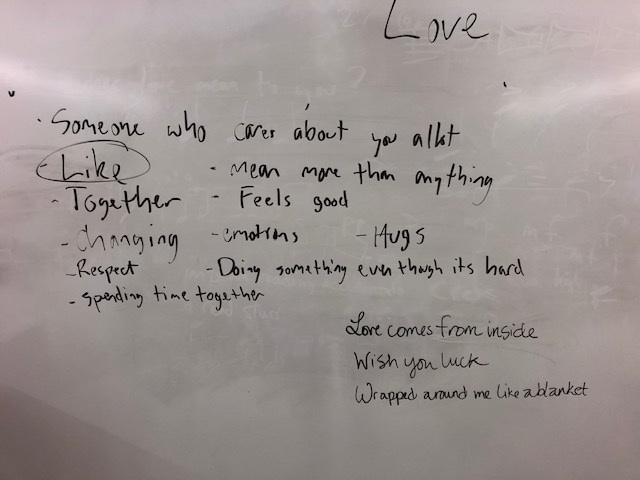 Love
· Someone who cares about you allot
- Like - mean more than anything
- Together - Feels good
- changing - emotions - Hugs
- Respect - Doing something even though its hard
- spending time together
Love comes from inside
Wish you luck
Wrapped around me like a blanket